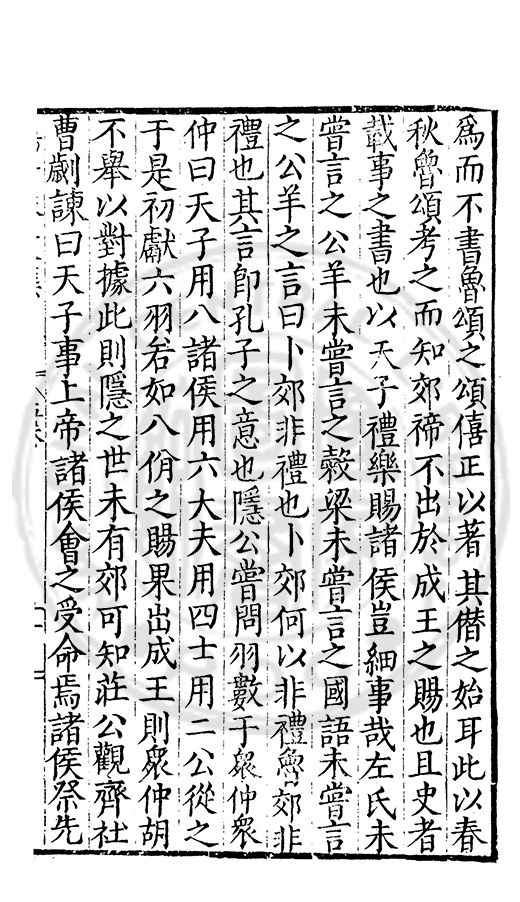 爲而不書魯頌之頌僖正以著其僭之始耳此以春
秋魯頌考之而知郊禘不出於成王之賜也且史者
載事之書也以天子禮樂賜諸侯豈細事哉左氏未
嘗言之公羊未嘗言之穀梁未嘗言之國語未嘗言
之公羊之言曰卜郊非禮也卜郊何以非禮魯郊非
禮也其言卽孔子之意也隱公嘗問羽數于衆仲衆
仲曰天子用八諸侯用六大夫用四士用二公從之
于是初獻六羽若如八佾之賜果出成王則衆仲胡
不舉以對據此則隱之世未有郊可知莊公觀齊社
曹劌諫曰天子事上帝諸侯會之受命焉諸侯祭先